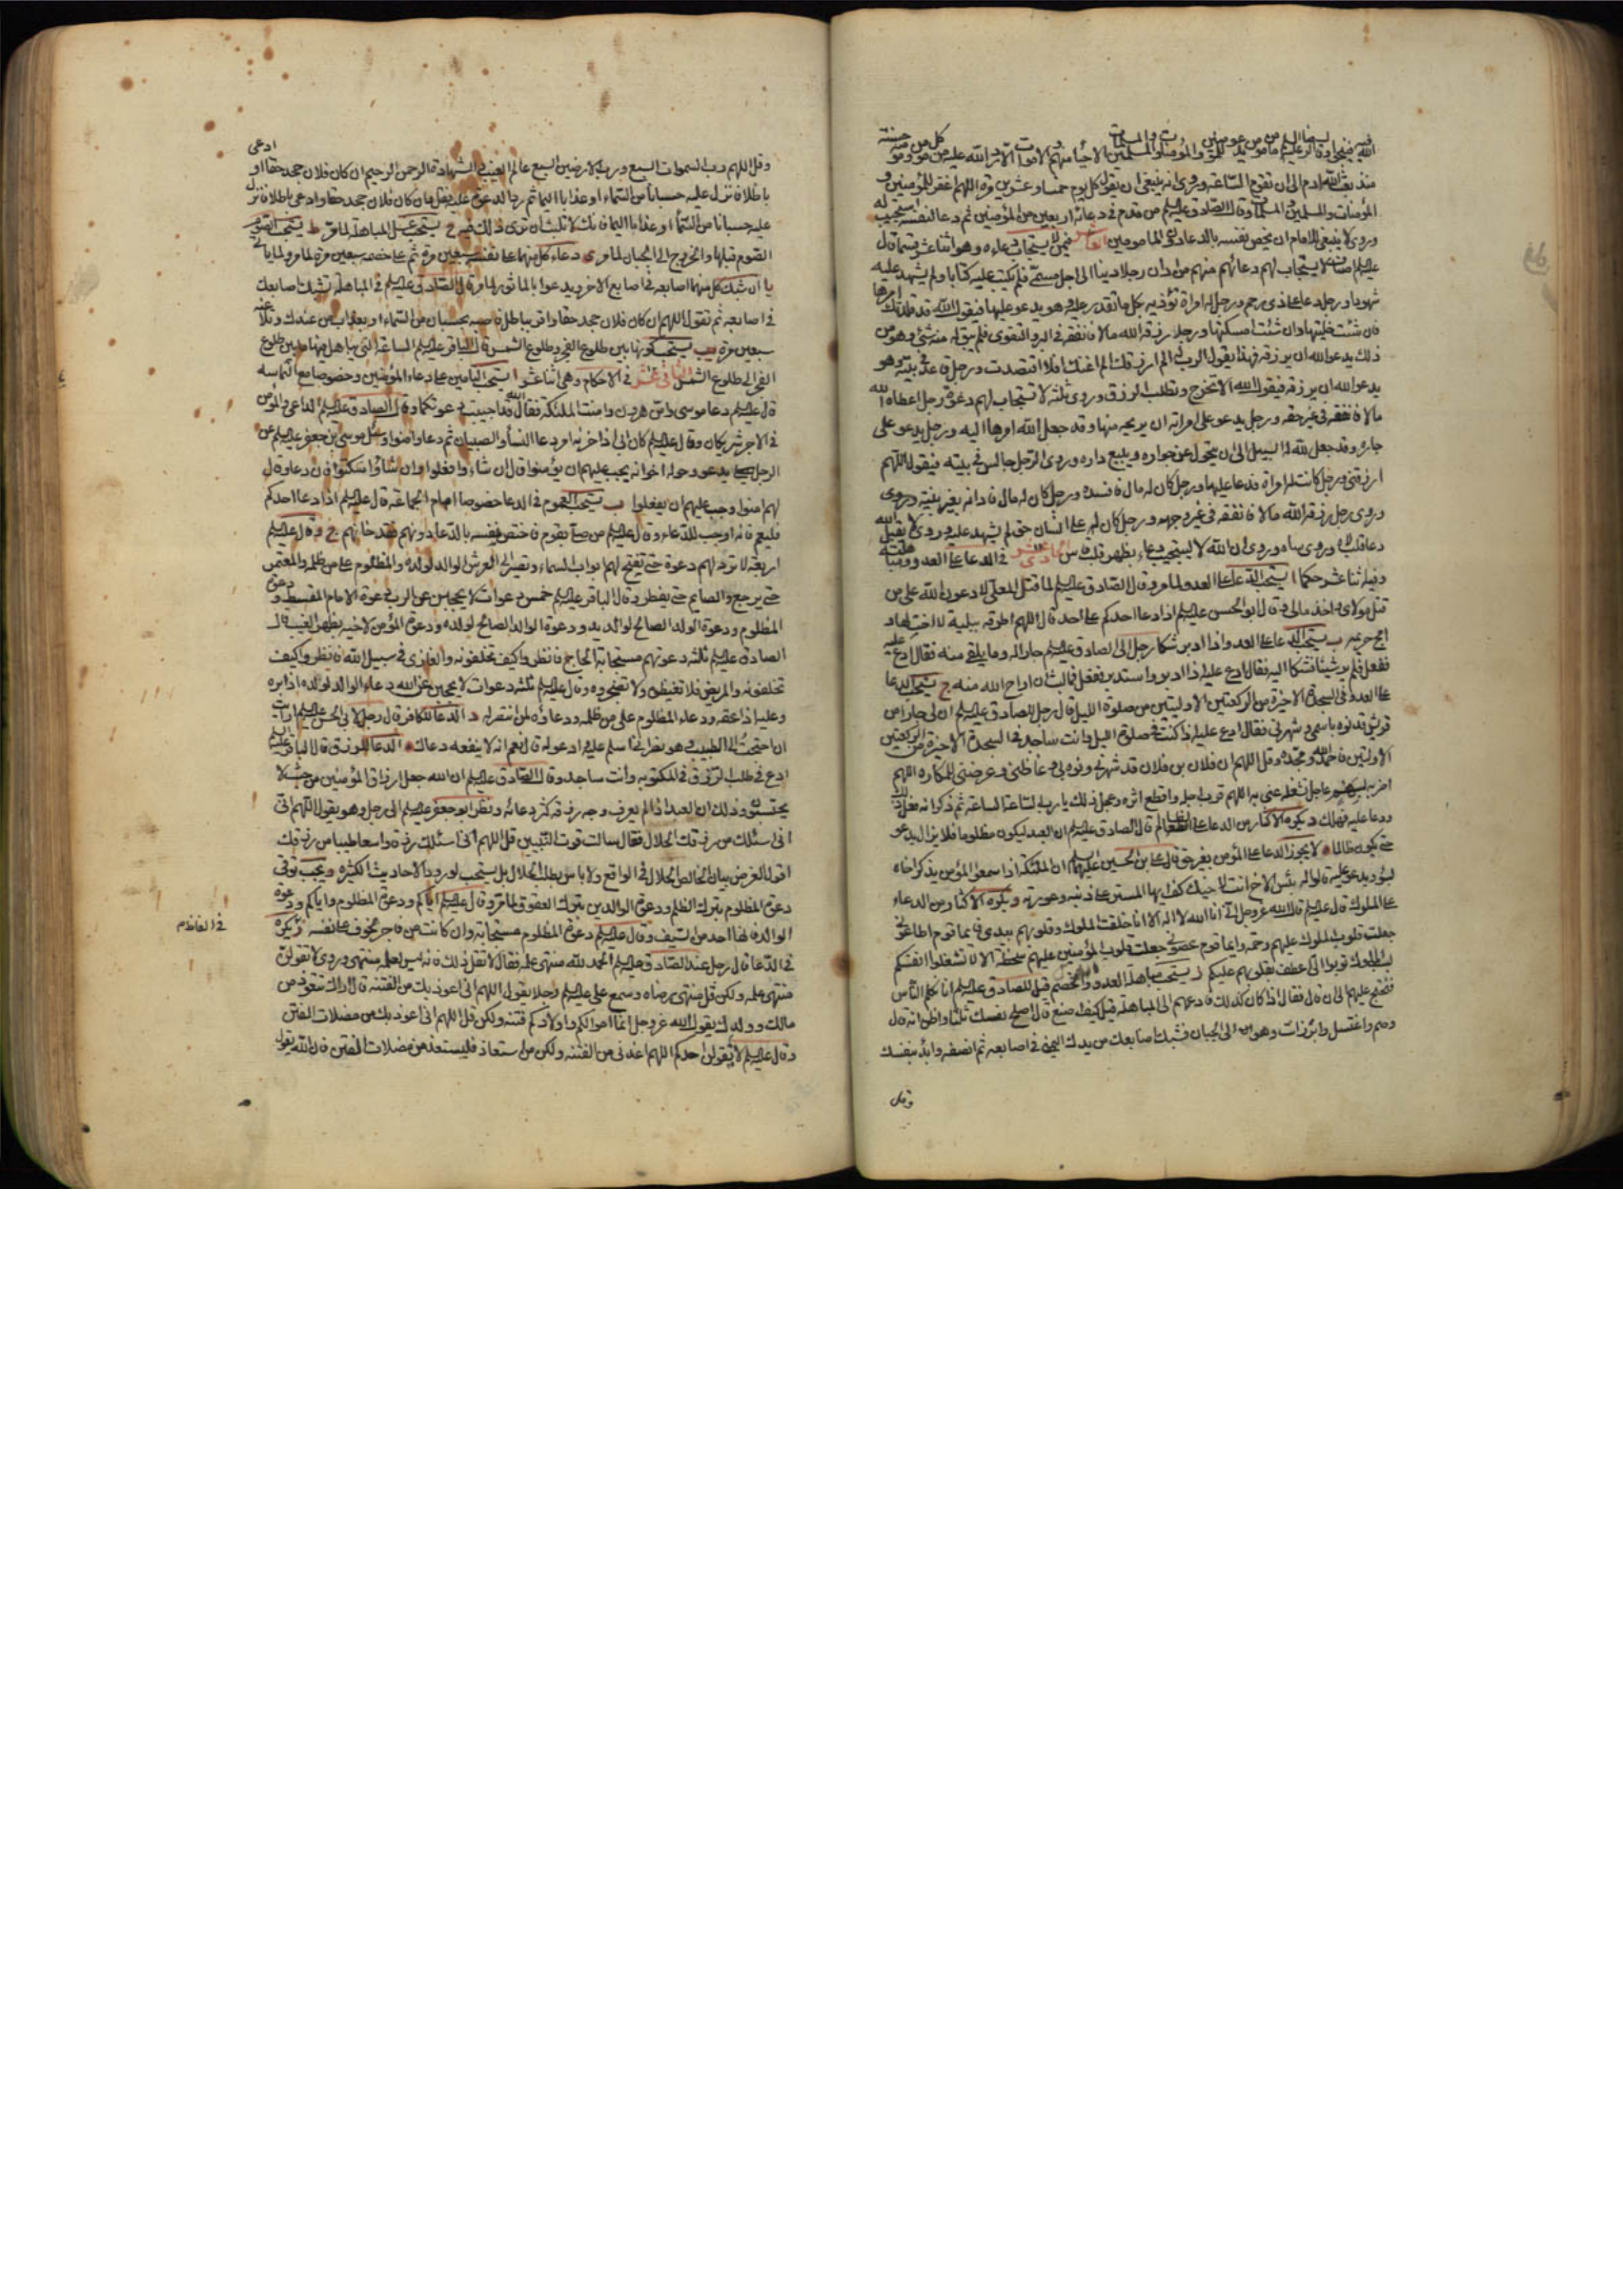 منذ بعث الله ادم الى ان تقوم الساعة وروى انه ينبغى ان يقول كل يوم خمسا وعشرين مرة اللهم اغفر للمؤمنين و
المؤمنات والمسلمين والمسلمات وقال الصادق عليه السلام من قدم فى دعائه اربعين من المؤمنين ثم دعا لنفسه استجيب له
وروى لا ينبغى للامام ان يخص نفسه بالدعاء دون المامومين العاشر فيمن لا يستجاب دعاءه وهو اثنا عشر قسما قال
عليه السلام اصناف لا يستجاب لهم دعائهم منهم من ادان رجلا دينا الى اجل مسمى فلم يكتب عليه كتابا ولم يشهد عليه
شهودا ورجل دعا على ذى رحم ورجل له امراة تؤذيه بكل ما تقدر عليه وهو يدعو عليها فيقول الله قد قلدتك امرها
فان شئت خليتها وان شئت امسكتها ورجل رزقه الله مالا فانفقه فى البر والتقوى فلم يبق له منه شئ وهو من
ذلك يدعو الله ان يرزقه فهذا يقول الرب له الم ارزقك الم اغنك افلا اقتصدت ورجل قاعد فى بيته وهو
يدعو الله ان يرزقه فيقول الله الا تخرج وتطلب الرزق وروى ثلثة لا تستجاب لهم دعوة رجل اعطاه الله
مالا فانفقه فى غير حقه ورجل يدعو على امراته ان يريحه منها وقد جعل الله امرها اليه ورجل يدعو على
جاره وقد جعل الله له السبيل الى ان يتحول عن جواره ويبيع داره وروى الرجل جالس فى بيته فيقول اللهم
ارزقنى ورجل كانت له امراة فدعا عليها ورجل كان له مال فافسده ورجل كان له مال فادانه بغير بينة وروى
وروى رجل رزقه الله مالا فانفقه فى غير وجهه
دعا قلب لاه وروى ساه وروى ان الله لا يستجيب دعاء بظهر قلب قاس الحادى عشر فى الدعاء على العدو ومباهلته
وفيه اثنا عشر حكما ا يستحب الدعاء على العدو لما مر وقال الصادق عليه السلام لما قتل المعلى لادعون الله على من
قتل مولاى واخذ مالى وقال ابو الحسن عليه السلام اذا دعا احدكم على احد قال اللهم اطرقه ببلية لا اخت لها و
ابح حريمه ب يستحب الدعاء على العدو اذا ادبر شكا رجل الى الصادق عليه السلام جارا له وما يلقى منه فقال ادع عليه
ففعل فلم ير شيئا فشكا اليه فقال ادع عليه اذا ادبر واستدبر ففعل فما لبث ان اراح الله منه ج يستحب الدعا
على العدو فى السجدة الاخيرة من الركعتين الاوليتين من صلوة الليل قال رجل للصادق عليه السلام ان لى جارا من
قريش قد نوه باسمى وشهرنى فقال ادع عليه اذا كنت فى صلوة الليل وانت ساجد فى السجدة الاخيرة من الركعتين
الاولتين فاحمد الله ومجده وقل اللهم ان فلان بن فلان قد شهرنى ونوه بى وغاظنى وعرضنى للمكاره اللهم
اضربه بسهم عاجل تشغله عنى به اللهم قرب اجله واقطع اثره وعجل ذلك يا رب الساعة الساعة ثم ذكر انه فعل ذلك
ودعا عليه فهلك د يكره الاكثار من الدعاء على الظالم قال الصادق عليه السلام ان العبد ليكون مظلوما فلا يزال يدعو
حتى يكون ظالما ه لا يجوز الدعاء على المؤمن بغير حق قال على بن الحسين عليهما السلام ان الملئكة اذا سمعوا المؤمن يذكر اخاه
بسوء ويدعو عليه قالوا له بئس الاخ انت لاخيك كف ايها المستر على ذنبه وعورته و يكره الاكثار من الدعاء
على الملوك قال عليه السلام قال الله عز وجل انى انا الله لا اله الا انا خلقت الملوك وقلوبهم بيدى فايما قوم اطاعونى
جعلت قلوب الملوك عليهم رحمة وايما قوم عصونى جعلت قلوب الملوك عليهم سخطة الا لا تشغلوا انفسكم
بسب الملوك توبوا الى اعطف بقلوبهم عليكم ز يستحب مباهلة العدو والخصم قيل للصادق عليه السلام انا نكلم الناس
فنحتج عليهم الى ان قال فقال اذا كان كذلك فادعهم الى المباهلة قيل كيف اصنع قال اصلح نفسك ثلثا واظن انه قال
وصم واغتسل وابرز انت وهو الى الجبان فشبك اصابعك من يدك اليمنى فى اصابعه ثم انصفه وابدء بنفسك
وقل
وقل اللهم رب السموات السبع ورب الارضين السبع عالم الغيب والشهادة الرحمن الرحيم ان كان فلان جحد حقا او ادعى
باطلا فانزل عليه حسبانا من السماء او عذابا اليما ثم رد الدعوة عليه فقل فان كان فلان جحد حقا وادعى باطلا فانزل
عليه حسبانا من السماء او عذابا اليما فانك لا تلبث ان ترى ذلك فيه ح يستحب غسل المباهلة لما مر ط يستحب الصوم
فى اصابعه ثم تقول اللهم ان كان فلان جحد حقا واقر بباطل فاصبه بحسبان من السماء او بعذاب من عندك وتلاعنه
سبعين مرة يب يستحب كونها بين طلوع الفجر وطلوع الشمس قال الباقر عليه السلام الساعة التى يباهل فيها ما بين طلوع
الفجر الى طلوع الشمس الثانى عشر فى الاحكام وهى اثنا عشر ا يستحب التامين على دعاء المؤمنين وخصوصا مع التماسه
قال عليه السلام دعا موسى وامن هرون وامنت الملئكة فقال الله قد اجيبت دعوتكما وقال الصادق عليه السلام الداعى والمؤمن
فى الاجر شريكان وقال عليه السلام كان ابى اذا حزنه امر دعا النساء والصبيان ثم دعا وامنوا وسئل موسى بن جعفر عليه السلام عن
الرجل يدعو وحوله اخوانه يجب عليهم ان يؤمنوا قال ان شاءوا فعلوا وان شاؤا سكتوا فان دعا وقال
لهم امنوا وجب عليهم ان يفعلوا ب يستحب العموم فى الدعا خصوصا امام الجماعة قال عليه السلام اذا دعا احدكم
فليعم فانه اوجب للدعاء وقال عليه السلام من صلى بقوم فاختص نفسه بالدعاء دونهم فقد خانهم ج قال عليه السلام
اربعة لا ترد لهم دعوة حتى تفتح لهم ابواب السماء وتصير الى العرش الوالد لولده والمظلوم على من ظلمه والمعتمر
حتى يرجع والصايم حتى يفطر وقال الباقر عليه السلام خمس دعوات لا يحجبن عن الرب دعوة الامام المقسط ودعوة
المظلوم ودعوة الولد الصالح لوالديه ودعوة الوالد الصالح لولده ودعوة المؤمن لاخيه بظهر الغيب وقال
الصادق عليه السلام ثلثة دعوتهم مستجابة الحاج فانظروا كيف تخلفونه والغازى فى سبيل الله فانظروا كيف
تخلفونه والمريض فلا تغيظوه ولا تضجروه وقال عليه السلام ثلثة دعوات لا يحجبن عن الله دعاء الوالد لولده اذا بره
وعليه اذا عقه ودعاء المظلوم على من ظلمه ودعاؤه لمن انتصر له د الدعا للكافر قال رجل لابى الحسن عليه السلام ارايت
ان احتجت الى الطبيب وهو نصرانى اسلم عليه وادعو له قال نعم انه لا ينفعه دعاك ه الدعا للرزق قال الباقر عليه السلام
ادع فى طلب الرزق فى المكتوبة وانت ساجد وقال الصادق عليه السلام ان الله جعل ارزاق المؤمنين من حيث لا
يحتسبون وذلك ان العبد اذا لم يعرف وجه رزقه كثر دعائه ونظر ابو جعفر عليه السلام الى رجل وهو يقول اللهم انى
انى اسئلك من رزقك الحلال فقال سالت قوت النبيين قل اللهم انى اسئلك رزقا واسعا طيبا من رزقك
اقول الغرض بيان الخالص الحلال فى الواقع ولا باس بطلب الحلال بل يستحب لورود الاحاديث الكثيرة و يجب توقى
دعوة المظلوم بترك الظلم ودعوة الوالدين بترك العقوق لما مر وقال عليه السلام اياكم ودعوة المظلوم واياكم ودعوة
الوالد فانها احد من السيف وقال عليه السلام دعوة المظلوم مستجابة وان كانت من فاجر مخوف على نفسه ز يكره
فى الدعا قال رجل عند الصادق عليه السلام الحمد لله منتهى علمه فقال لا تقل ذلك فانه ليس لعلمه منتهى وروى لا تقولن
منتهى علمه ولكن قل منتهى رضاه وسمع على عليه السلام رجلا يقول اللهم انى اعوذ بك من الفتنة قال اراك تتعوذ من
مالك وولدك يقول الله عز وجل انما اموالكم واولادكم فتنة ولكن قل اللهم انى اعوذ بك من مضلات الفتن
وقال عليه السلام لا يقولن احدكم اللهم اعذنى من الفتنة ولكن من استعاذ فليستعذ من مضلات الفتن فان الله يقول